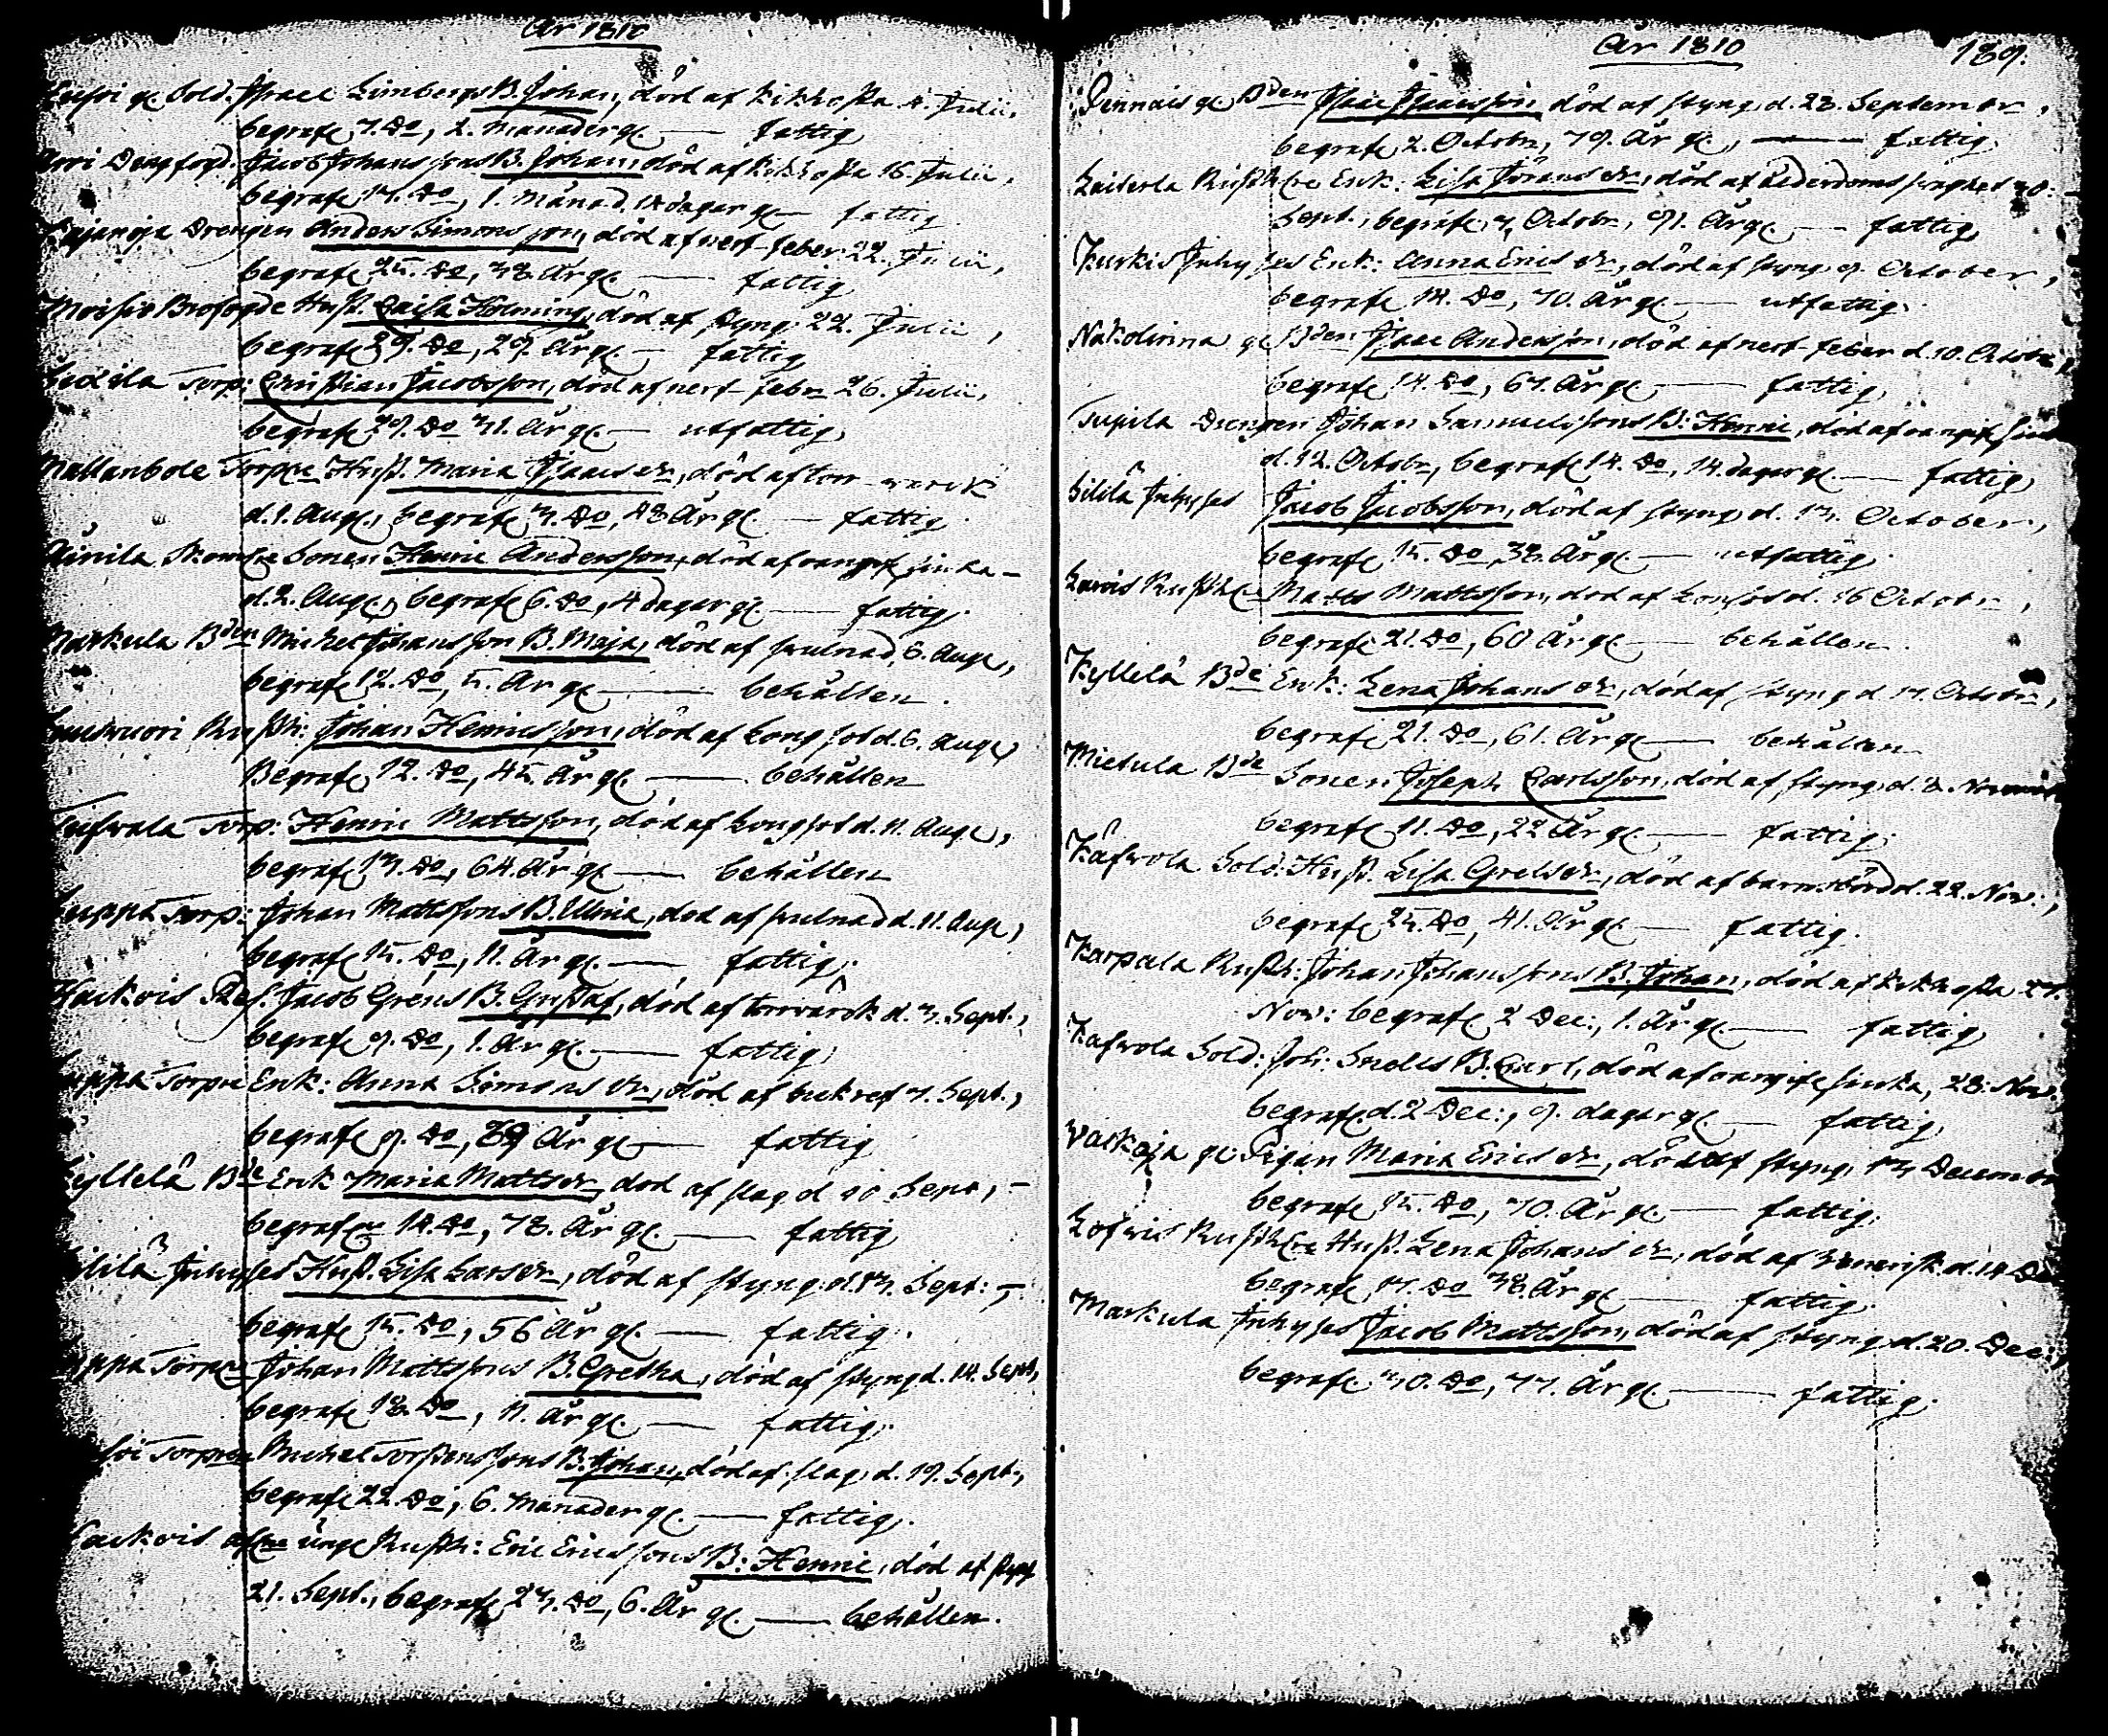 År 1810
gl. Sold. Israel Limbergs B. Johan, död af Kikhosta 4. Julii,
begrafn 7. Do, 2. månader gl. — fattig
Jacob Johanssons B. Johan, död af Kikhosta 16. Julii,
begrafn 17. Do, 1. månad. 14 dagar gl. — fattig
Drengen Anders Simonsson, död af nerf-feber 22. Julii,
begrafn 25. Do, 38. År gl. — fattig
Moisio Brofogde Hust. Caisa Holming, död af styng. 22. Julii,
begrafn 29. Do, 29. År gl. — fattig
Torp: Christian Jacobsson, död af nerf-febr 26. Julii,
begrafn 29. Do 71. År gl. — utfattig
Nallanbole Torpre Hust. Maria Isaacsdr, död af torrvärck
d. 1. Aug., begrafn 3. Do, 48 År gl. — fattig
Sonen Henric Andersson, död af oangifn siuka
d. 2. Aug., begrafn 6. Do, 4 dagar gl. — fattig.
Markula Bden Michel Johansson B. Maja, död af svulnad, 6. Aug.,
begrafn 12. Do, 5. År gl. — behållen.
Rusth: Johan Henricsson, död af Longsot d. 6. Aug.,
Begrafn 12. Do, 45. År gl. — behållen
Torp: Henric Mattsson, död af Longsot d. 11. Aug.,
begrafn 13. Do, 64. År gl. — behållen
Torp: Johan Mattssons B. Ulrica, död af svulnad d. 11. Aug.,
begrafn 15. Do, 11. År gl. — fattig.
Hackois Ref. Jacob Gréns B. Gustaf, död af torrvärck d. 3. Sept.,
begrafn 9. Do, 1. År gl. — fattig
Torpre Enk: Anna Simonsdr, död af bukref 7. Sept.,
begrafn 9. Do, 89 År gl. — fattig
Kyllelä Bde Enk Maria Mattsdr, död af slag d 10 Sept,
begrafn 14. Do, 78. År gl. — fattig
Inhyses Hust. Lisa Larsdr, död af styng. d. 13. Sept:
begrafn 15. Do, 56 År gl. — fattig.
Torpre Johan Mattssons B. Gretha, död af styng d. 14. Sept,
begrafn 18. Do, 11. År gl. — fattig.
Torpren Michel Torstenssons B. Johan, död af slag, d. 19. Sept.,
begrafn 22. Do, 6. månader gl. — fattig.
Hackois unge Rusth: Eric Ericssons B: Henric, död af styng
21. Sept., begrafn 23. Do, 6. År gl. — behållen.
År 1810 189.
Pennais gl Bden Isaac Isaacsson död af styng, d. 28. September,
begrafn 2. Octobr, 79. År gl., — fattig.
Rusthre Enk: Lisa Jöransdr, död af ålderdoms svaghet 30.
Sept., begrafn 7, Octobr, 91. År gl. — fattig
Kurkis Inhyses Enk: Anna Ericsdr, död af styng. 9. October,
begrafn 14. Do, 70. År gl. — utfattig.
Nakolinna gl Bden Isaac Andersson, död af nerf-feber d. 10. Octobr,
begrafn 14. Do, 67. År gl. — fattig
Tupila Drengen Johan Samuelssons B: Henric, död af oangifn siuk
d. 12. Octobr, begrafn 14. Do, 14. dagar gl. — fattig
Sililä Inhyses Jacob Jacobsson, död af styng d. 13. October,
begrafn 15. Do, 38. År gl. — utfattig.
Rusth. Matts Mattsson, död af Lonsot d. 16 Octobr,
begrafn 21. Do, 60 År gl. — behållen.
Kyllelä Bde Enk: Lena Johansdr, död af styng d 17. Octobr,
begrafn 21. Do, 61. År gl. — behållen
Mietula Bde Sonen Joseph Carlsson, död af styng, d. 8. November
begrafn 11. Do, 22 År gl. — fattig.
Käfvola Sold. Hust. Lisa Grelsdr, död af barnsbörd d. 22. Nov:,
begrafn 25. Do, 41. År gl. — fattig.
Karpala Rusth: Johan Johanssons B. Johan, död af Kikhosta 27.
Nov: begrafn 2 Dec:, 1. År gl. — fattig
Käfvola Sold: Joh: Snells B. Carl, död af oangifn siuka, 28: Nov.
begrafn. d. 2 Dec:, 9. dagar gl. — fattig
Vackoja gl: Pigan Maria Ericsdr, död af styng, 13. December
begrafn 15. Do, 70. År gl. — fattig.
Rusthre Hust. Lena Johansdr, död af Venerisk. d. 14. De
begrafn, 17. Do 38. År gl. — fattig.
Markula Inhyses Jacob Mattsson, död af styng d. 20. Dec:
begrafn. 30. Do, 77. År gl. — fattig.